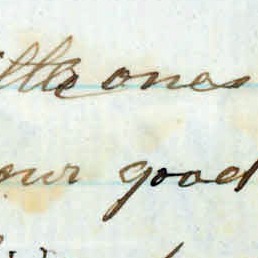 ittle ones
our good